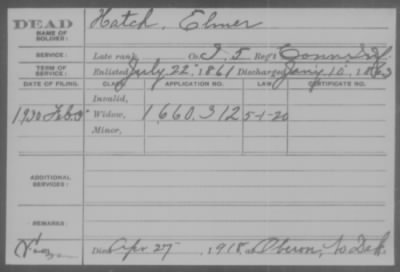 DEAD
NAME OF SOLDIER: Hatch, Elmer
SERVICE: Late rank Co. I, 5 Reg't Conn Inf
TERM OF SERVICE: Enlisted July 22, 1861 Discharged Jany 10, 1863
DATE OF FILING. CLASS. APPLICATION NO. LAW. CERTIFICATE NO.
Invalid,
1920 Feb Widow, 1,660,312 5-1-20
Minor,
ADDITIONAL SERVICES:
REMARKS:
Died Apr 27, 1918, at Oberon, N Dak.